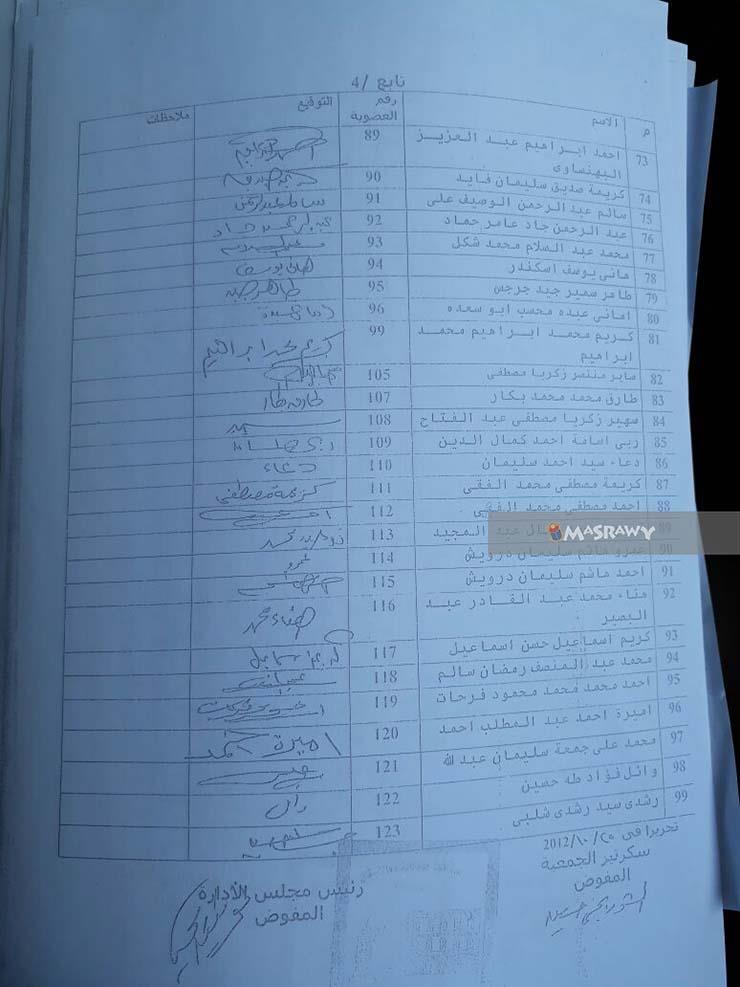 تابع /4
م الاسم رقم العضوية التوقيع ملاحظات
73 احمد ابراهيم عبد العزيز 89
البهنساوى
74 كريمة صديق سليمان فايد 90
75 سالم عبد الرحمن الوصيف على 91
76 عبد الرحمن جاد عامر حماد 92
77 محمد عبد السلام محمد شكل 93
78 هانى يوسف اسكندر 94 هانى يوسف
79 طاهر سمير جيد جرجس 95
80 امانى عبده محسب ابو سعده 96
81 كريم محمد ابراهيم محمد 99 كريم محمد ابراهيم
ابراهيم
82 صابر منتصر زكريا مصطفى 105
83 طارق محمد محمد بكار 107
84 سهير زكريا مصطفى عبد الفتاح 108
85 ربى اسامة احمد كمال الدين 109
86 دعاء سيد احمد سليمان 110 دعاء
87 كريمة مصطفى محمد الفقى 111 كريمة مصطفى
88 احمد مصطفى محمد الفقى 112
89 عبد المجيد 113
MASRAWY
90 عمرو هاشم سليمان درويش 114 عمرو
91 احمد هاشم سليمان درويش 115
92 هناء محمد عبد القادر عبد 116 هناء محمد
البصير
93 كريم اسماعيل حسن اسماعيل 117
94 محمد عبد المنصف رمضان سالم 118
95 احمد محمد محمد محمود فرحات 119
96 اميرة احمد عبد المطلب احمد 120 اميرة احمد
97 محمد على جمعة سليمان عبد الله 121
98 وائل فؤاد طه حسين 122 وائل
99 رشدى سيد رشدى شلبى 123
تحريرا فى ٢٥/١٠/2012
سكرتير الجمعية
المفوض
رئيس مجلس الأدارة
المفوض